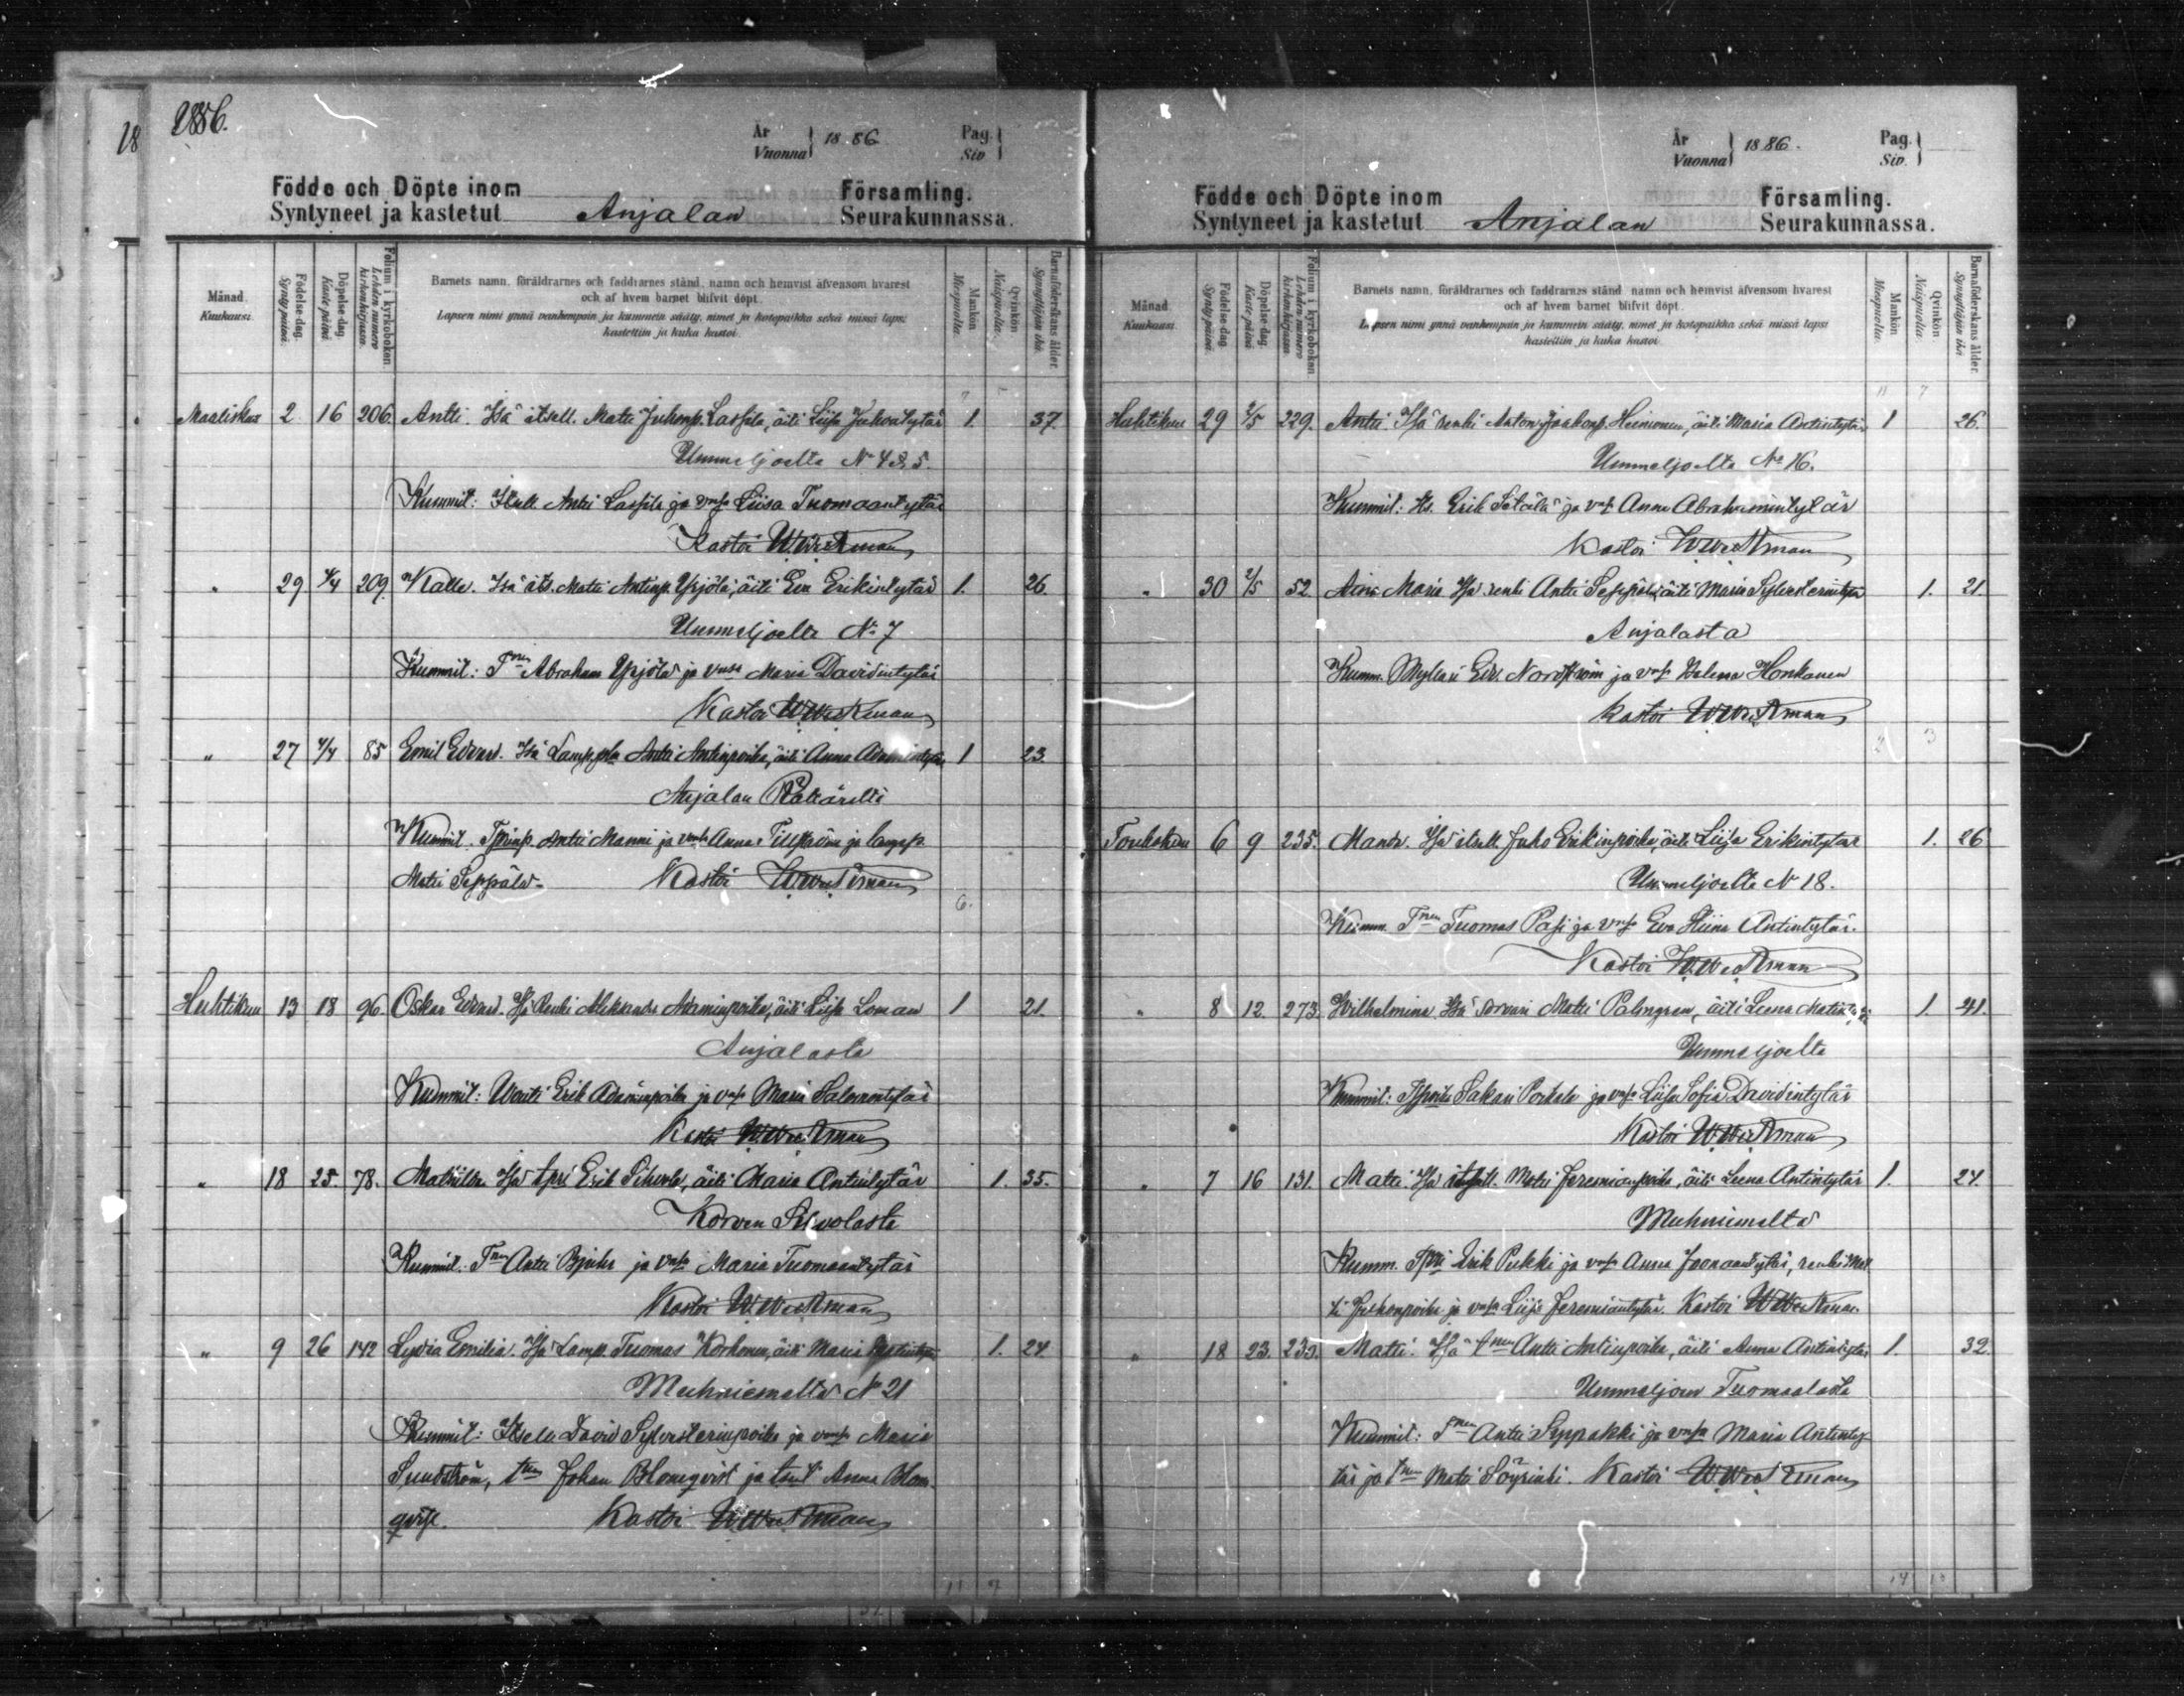 1886.
18
År
Vuonna } 1886
Pag.
Siv. }
Födde och Döpte inom
Syntyneet ja kastetut Anjalan
Församling.
Seurakunnassa.
Månad.
Kuukausi.
Födelse-dag.
Synty päivä.
Döpelse-dag.
Kaste päivä.
Folium i kyrkoboken
Lehden numero kirkonkirjassa.
Barnets namn, föräldrarnes och faddrarnes stånd, namn och hemvist äfvensom hvarest
och af hvem barnet blifvit döpt.
Lapsen nimi ynnä vanhempain ja kummein sääty, nimet ja kotopaikka sekä missä lapsi
kastettiin ja kuka kastoi.
Mankön.
Miespuolia.
Qvinkön.
Naispuolia.
Barnaföderskans ålder.
Synnyttäjän ikä.
Maaliskuu 2 16 206. Antti. Isä itsell. Matti Juhonp. Lassila, äiti Liisa Juhontytär 1. 37.
Ummeljoelta No 4 & 5.
Kummit: Itsell. Antti Lassila ja vmsa Liisa Tuomaantytär
Kastoi W. Westman
" 29 4/4 209. Kalle. Isä its. Matti Antinp. Yrjölä, äiti Eva Erikintytär 1. 26.
Ummeljoelta No 7
Kummit: Tnen Abraham Yrjölä ja vmsa Maria Davidintytär
Kastoi W. Westman
" 27 4/4 85 Emil Edvard. Isä Lamp. Antti Antinpoika, äiti Anna 1 23.
Anjalan
Kummit. Antti Manni ja vmsa Anna ja lamp.
Matti Seppälä. Kastoi W. Westman
6.
Huhtikuu 13 18 96. Oskar Edvard. Isä Renki Aleksander Adaminpoika, äiti Liisa Loman 1 21.
Anjalasta
Kummit: Vouti Erik Adaminpoika ja vmsa Maria Salomontytär
Kastoi W. Westman
" 18 25. 78. Mathilda. Isä Erik Sihvola, äiti Maria Antintytär 1. 35.
Korven Sihvolasta
Kummit. Tnen Antti ja vmsa Maria Tuomaantytär
Kastoi W. Westman
" 9 26 142 Lydia Emilia. Isä Lamp. Tuomas Korhonen, äiti Maria 1. 24.
Muhniemeltä No 21
Kummit: Itsell. David Sylvesterinpoika ja vmsa Maria
Sundström, tnen Johan Blomqvist ja Anna Blom-
qvist. Kastoi W. Westman
11 7
År
Vuonna } 1886.
Pag.
Siv. }
Födde och Döpte inom
Syntyneet ja kastetut Anjalan
Församling.
Seurakunnassa.
Månad.
Kuukausi.
Födelse-dag.
Synty päivä.
Döpelse-dag.
Kaste päivä.
Folium i kyrkoboken.
Lehden numero kirkonkirjassa.
Barnets namn, föräldrarnes och faddrarnes stånd, namn och hemvist äfvensom hvarest
och af hvem barnet blifvit döpt.
Lapsen nimi ynnä vanhempain ja kummein sääty, nimet ja kotopaikka sekä missä lapsi
kastettiin ja kuka kastoi.
Mankön.
Miespuolia.
Qvinkön.
Naispuolia.
Barnaföderskans ålder.
Synnyttäjän ikä.
11 7
Huhtikuu 29 2/5 229. Antti. Isä renki Anton Jaakonp. Heinonen, äiti Maria Antintytär 1 26.
Ummeljoelta No 16.
Kummit: Its. Erik ja vmsa Anna Abrahamintytär
Kastoi W. Westman
" 30 2/5 52. Aina Maria. Isä renki Antti Seppälä, äiti Maria Sylvesterintytär 1. 21.
Anjalasta
Kumm. Mylläri Edv. Nordström ja vmsa Helena Honkanen
Kastoi W. Westman
2 3
Toukokuu 6 9 235. Manda. Isä itsell. Juho Erikinpoika, äiti Liisa Erikintytär 1. 26
Ummeljoelta No 18.
Kumm. Tnen Tuomas Pasi ja vmsa Eva Stiina Antintytär.
Kastoi W. Westman
" 8 12. 273. Wilhelmina. Isä torpari Matti Palmgren, äiti Leena 1. 41.
Ummeljoelta
Kummit: Sakari Porkala ja vmsa Liisa Sofia Davidintytär
Kastoi W. Westman
" 7 16 131. Matti. Isä itsell. Matti Jeremiaanpoika, äiti Leena Antintytär 1. 24.
Muhniemeltä
Kumm. Erik Pukki ja vmsa Anna Joonaantytär, renki Mat-
ti Juhonpoika ja vmsa Liisa Jeremiaantytär. Kastoi W. Westman.
" 18 23. 235. Matti. Isä tnen Antti Antinpoika, äiti Anna Antintytär 1. 32.
Ummeljoen Tuomaalasta
Kummit: Tnen Antti ja vmsa Maria Antinty-
tär ja tnen Matti Söyrinki. Kastoi W. Westman
14